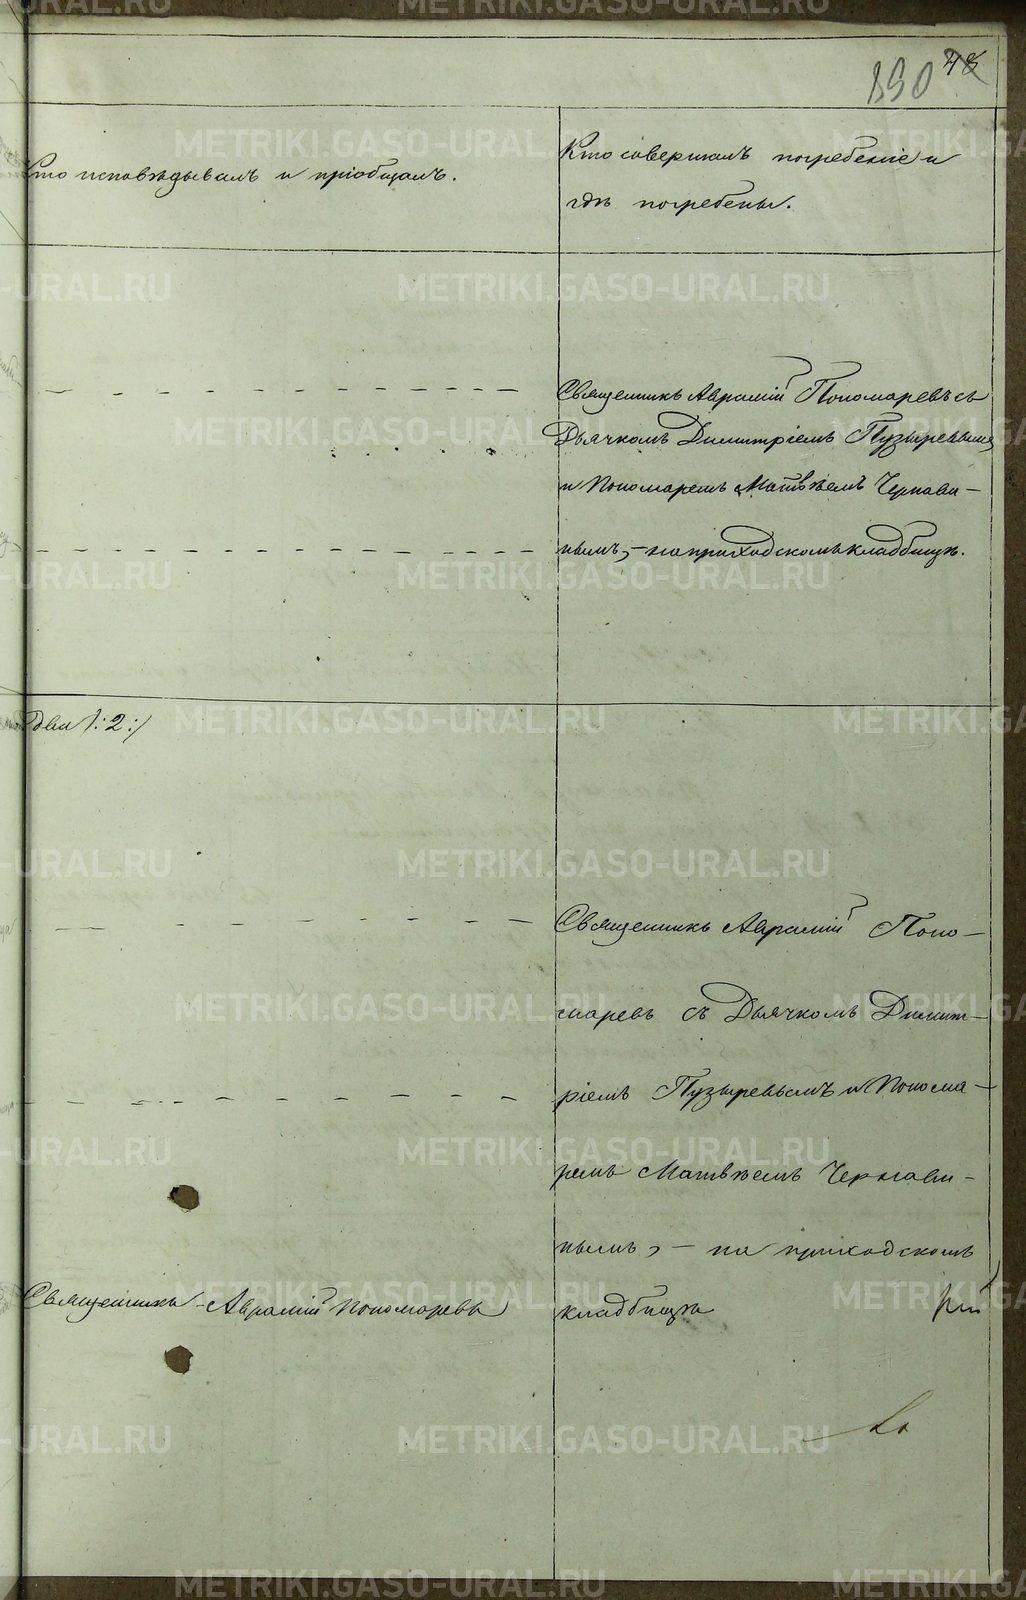 48
190
Кто исповѣдывалъ и пріобщалъ.
Кто совершалъ погребеніе и
гдѣ погребены.
Священникъ Аврамій Пономаревъ съ
Дьячкомъ Димитріемъ Пузыревымъ
и Пономаремъ Матвѣемъ Чернави-
нымъ, - на приходскомъ кладбищѣ.
два /: 2 :/
Священникъ Аврамій Поно-
маревъ съ Дьячкомъ Димит-
ріемъ Пузыревымъ и Понома-
ремъ Матвѣемъ Чернави-
нымъ, - на приходскомъ
Священникъ Аврамій Пономаревъ
кладбищѣ
METRIKI.GASO-URAL.RU